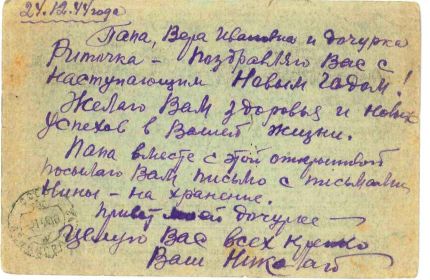 24.12.44 года
Папа, Вера Ивановна и дочурка
Риточка – Поздравляю Вас с
наступающим Новым годом!
Желаю Вам здоровья и новых
успехов в Вашей жизни.
Папа вместе с этой открыткой
посылаю Вам письмо с письмами
Нины – на хранение.
Привет моей дочурке –
Целую Вас всех крепко
Ваш Николай